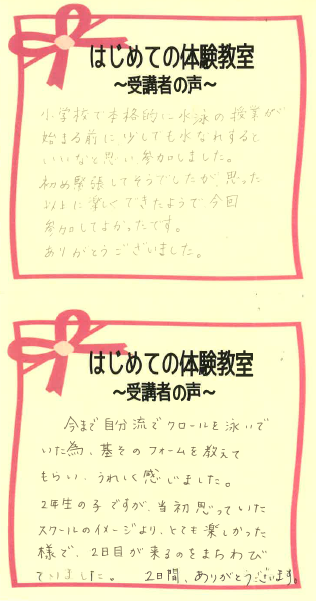 はじめての体験教室
～受講者の声～
小学校で本格的に水泳の授業が
始まる前に少しでも水なれすると
いいなと思い参加しました。
初め緊張してそうでしたが、思った
以上に楽しくできたようで今回
参加してよかったです。
ありがとうございました。
はじめての体験教室
～受講者の声～
今まで自分流でクロールを泳いで
いた為、基そのフォームを教えて
もらい、うれしく感じました。
2年生の子ですが、当初思っていた
スクールのイメージより、とても楽しかった
様で、2日目が来るのをまちわび
ていました。 2日間、ありがとうございます。